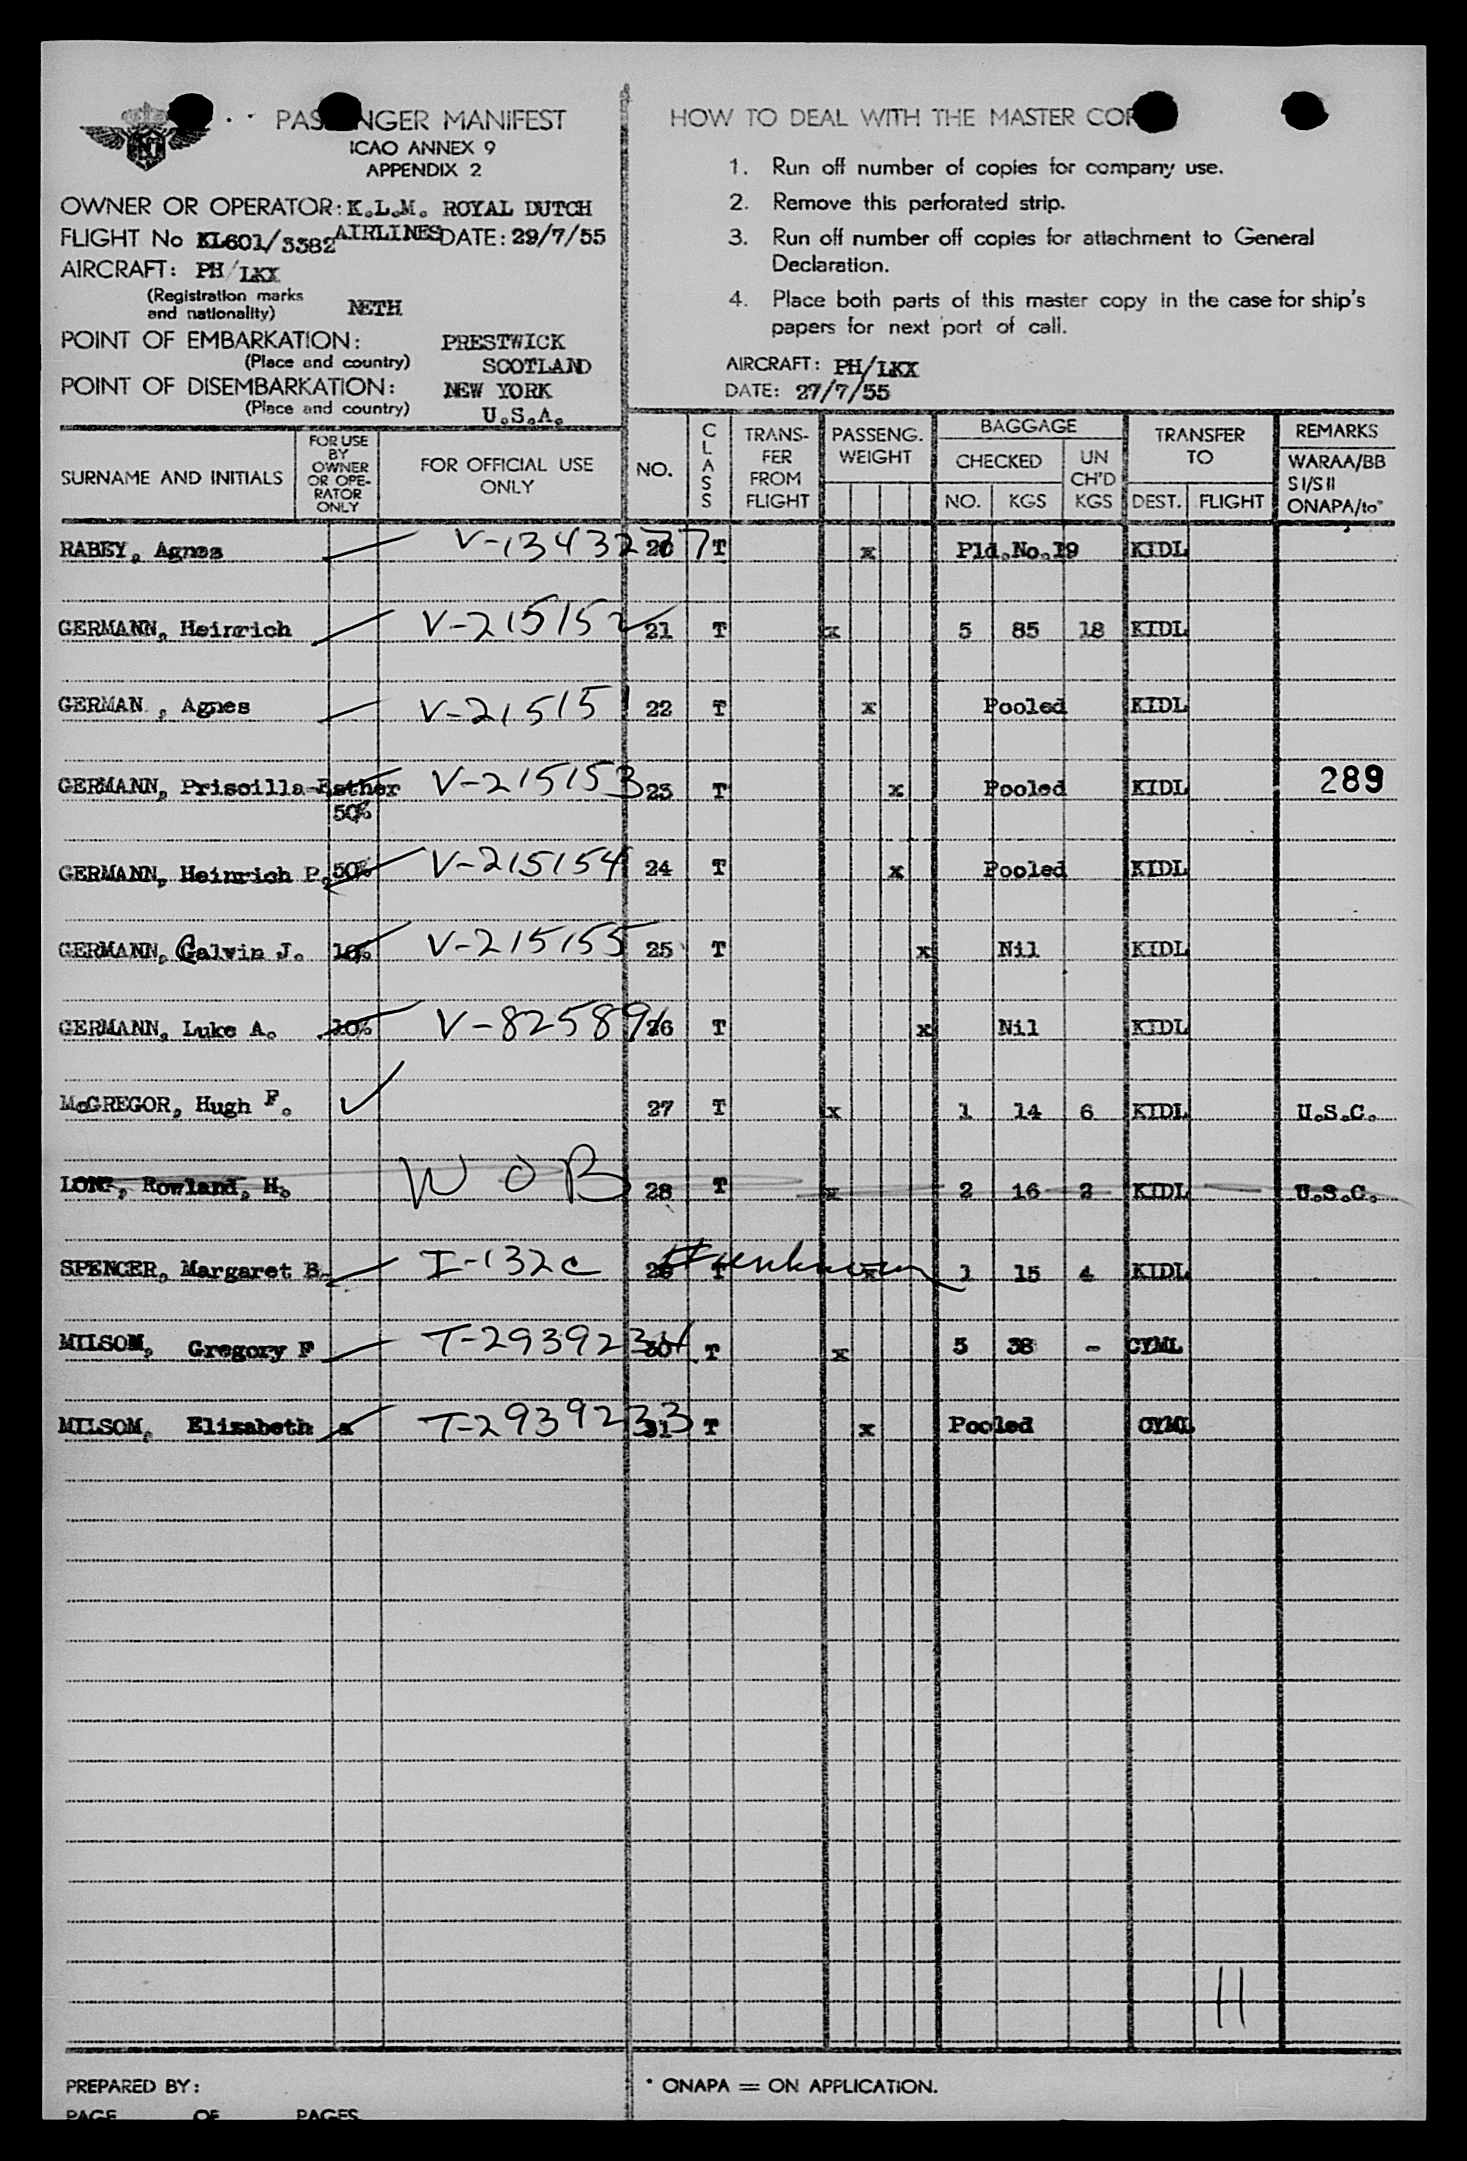 PASSENGER MANIFEST
ICAO ANNEX 9
APPENDIX 2
OWNER OR OPERATOR: K.L.M. ROYAL DUTCH
AIRLINES
FLIGHT No KL601/3382 DATE: 29/7/55
AIRCRAFT: PH/LKX
(Registration marks
and nationality) NETH
POINT OF EMBARKATION: PRESTWICK
(Place and country) SCOTLAND
POINT OF DISEMBARKATION: NEW YORK
(Place and country) U.S.A.
HOW TO DEAL WITH THE MASTER COP
1. Run off number of copies for company use.
2. Remove this perforated strip.
3. Run off number off copies for attachment to General
Declaration.
4. Place both parts of this master copy in the case for ship's
papers for next port of call.
AIRCRAFT: PH/LKX
DATE: 27/7/55
SURNAME AND INITIALS
FOR USE
BY
OWNER
OR OPE-
RATOR
ONLY
FOR OFFICIAL USE
ONLY
NO.
CLASS
TRANS-
FER
FROM
FLIGHT
PASSENG.
WEIGHT
BAGGAGE
CHECKED
NO. KGS
UN
CH'D
KGS
TRANSFER
TO
DEST. FLIGHT
REMARKS
WARAA/BB
S I/S II
ONAPA/to*
RABEY, Agnes V-1343277 20 T x Pld.No.19 KIDL
GERMANN, Heinrich V-215152 21 T x 5 85 18 KIDL
GERMAN , Agnes V-215151 22 T x Pooled KIDL
GERMANN, Priscilla-Esther V-215153 23 T x Pooled KIDL 289
50%
GERMANN, Heinrich P. 50% V-215154 24 T x Pooled KIDL
GERMANN, Calvin J. 10% V-215155 25 T x Nil KIDL
GERMANN, Luke A. 10% V-825891 26 T x Nil KIDL
McGREGOR, Hugh F. 27 T x 1 14 6 KIDL U.S.C.
LONG, Rowland, H. W O B 28 T x 2 16 2 KIDL U.S.C.
SPENCER, Margaret B. I-132c 29 T x 1 15 4 KIDL
MILSOM, Gregory F T-2939234 30 T x 5 38 - CYML
MILSOM, Elizabeth a T-2939233 31 T x Pooled CYML
11
PREPARED BY:
* ONAPA = ON APPLICATION.
PAGE OF PAGES